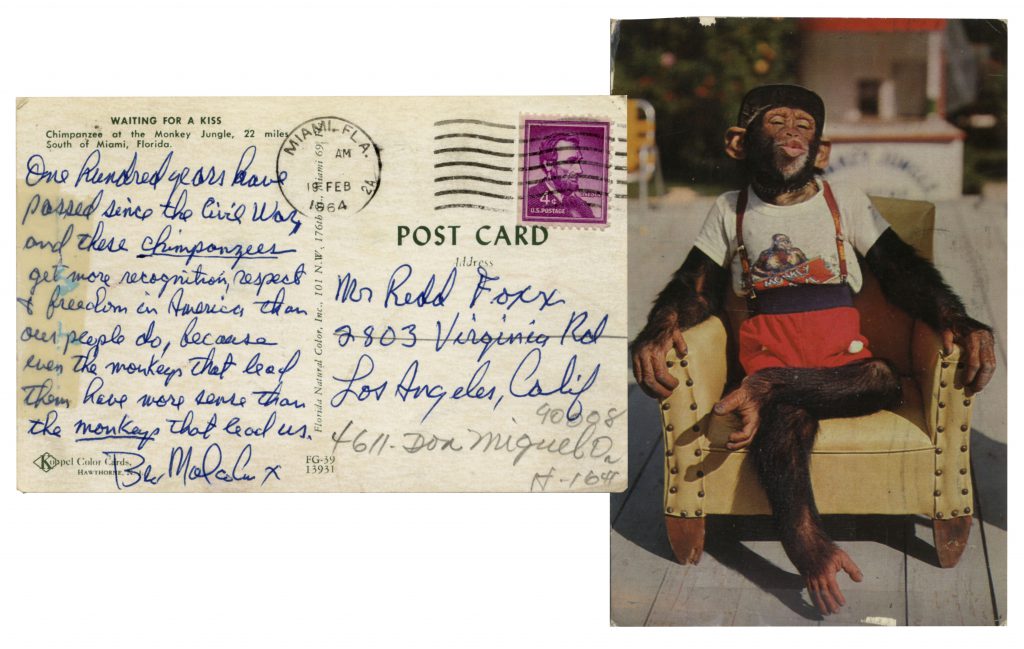 WAITING FOR A KISS
Chimpanzee at the Monkey Jungle, 22 miles
South of Miami, Florida.
One hundred years have
passed since the Civil War,
and these chimpanzees
get more recognition, respect
& freedom in America than
our people do, because
even the monkeys that lead
them have more sense than
the monkeys that lead us.
Bro Malcolm X
Color Cards
HAWTHORNE,
Florida Natural Color, Inc., 101 N.W. 176th Miami 69,
FG-39
13931
MIAMI, FLA.
AM
19 FEB
1964
4¢
U.S. POSTAGE
POST CARD
Address
Mr Redd Foxx
2803 Virginia Rd
Los Angeles, Calif
90008
4611 Don Miguel Dr
MONKEY